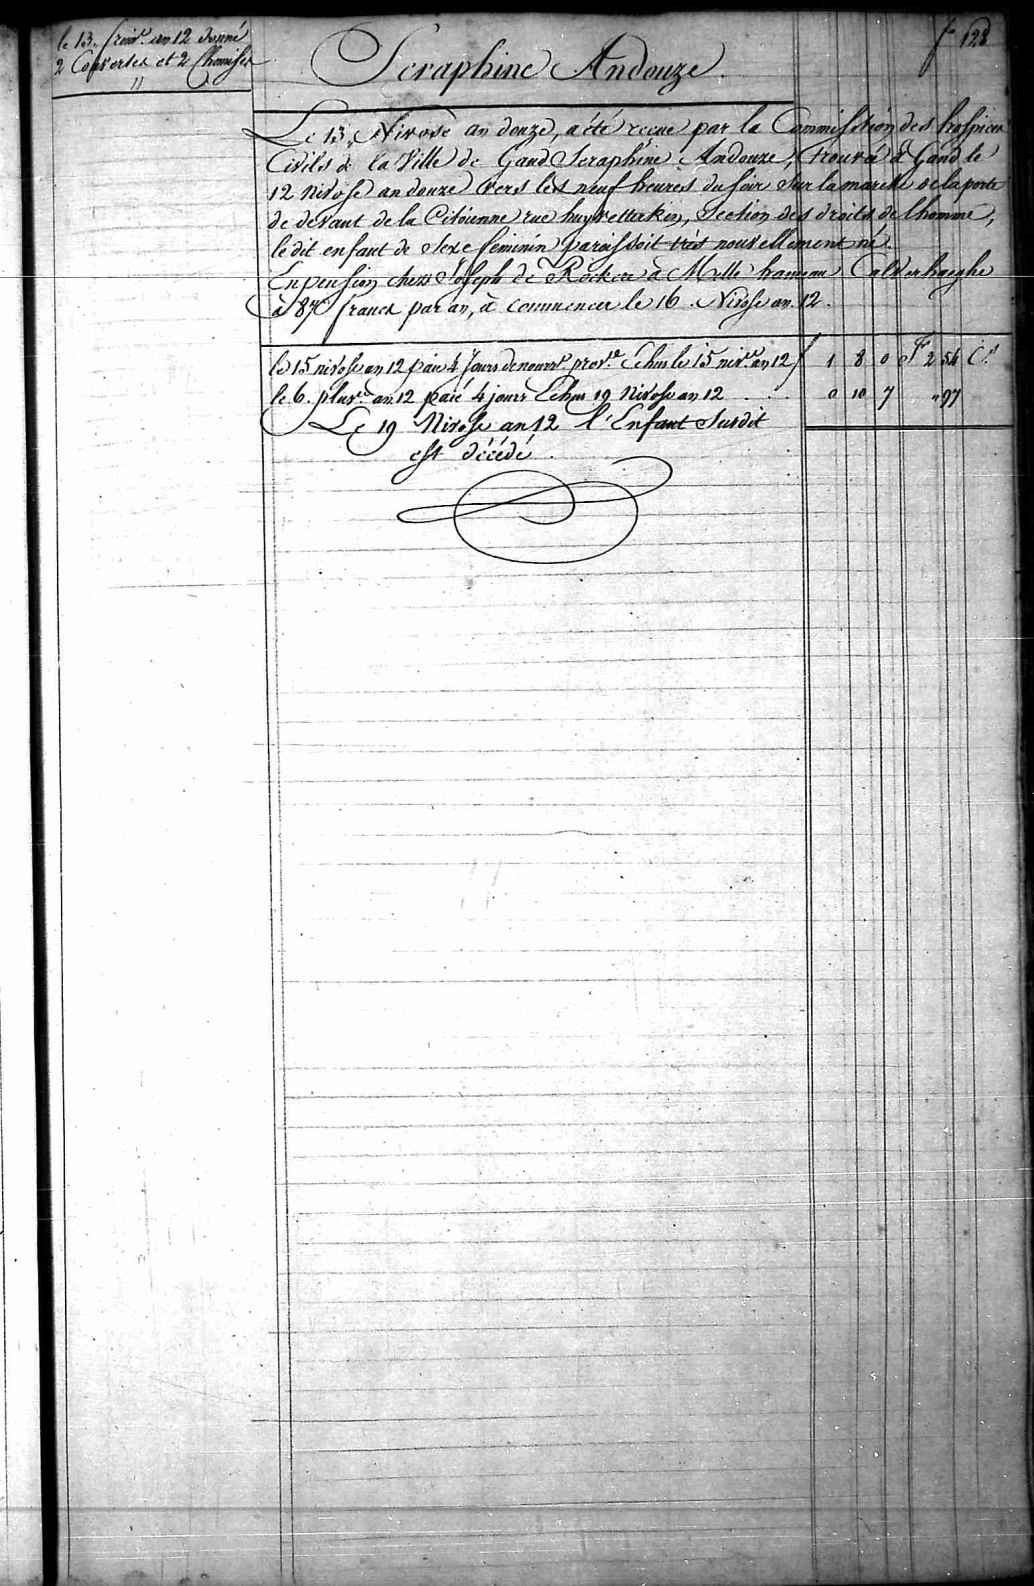 le 13. frim.e an 12 donné
2 Couvertes et 2 Chemises
"
f.o 128
Seraphine Andouze.
Le 13. Nivose an douze, a été reçue par la Commission des hospices
Civils de la Ville de Gand Seraphine Andouze, trouvée à Gand le
12 nivose an douze vers les neuf heures du soir sur la marche de la porte
de devant de la Citoienne rue huyvettershin, Section des droits de lhomme,
le dit enfant de Sexe féminin paraissoit très nouvellement né.
En pension chez Joseph de Rocker à Melle hameau Calverhaeghe
à 87 francs par an, à commencer le 16 Nivose an 12.
le 15 nivose an 12 paié 4 Jours de nourr.e prov.re Echus le 15 niv.se an 12 1 8 0 F 2 54 C.s
le 6. pluv.e an 12 paié 4 jours Echus 19 Nivose an 12 . . . . 0 10 7 " 97
Le 19 Nivose an 12 l'Enfant Susdit
est décédé.